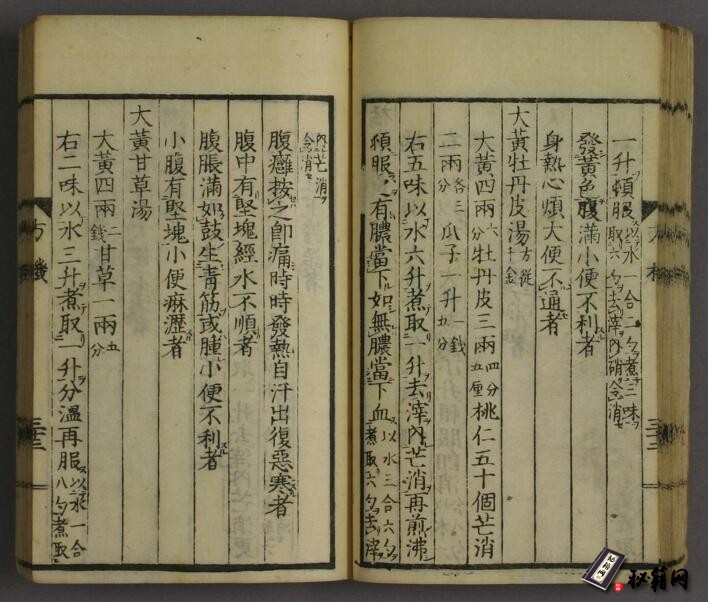 一升頓服以水一合二勺煮二味取六勺去滓內硝令消
發黃色腹滿小便不利者
身熱心煩大便不通者
大黃牡丹皮湯方從千金
大黃四兩六分牡丹皮三兩四分五厘桃仁五十個芒消
二兩各三分瓜子一升一錢五分
右五味以水六升煮取一升去滓內芒消再煎沸
頓服有膿當下如無膿當下血以水三合六勺煮取六勺去滓
內芒消令消
腹癰按之卽痛時時發熱自汗出復惡寒者
腹中有堅塊經水不順者
腹脹滿如鼓生靑筋或腫小便不利者
小腹有堅塊小便痳瀝者
大黃甘草湯
大黃四兩二錢甘草一兩五分
右二味以水三升煮取一升分溫再服以水一合八勺煮取
方機
三十三
秘籍网